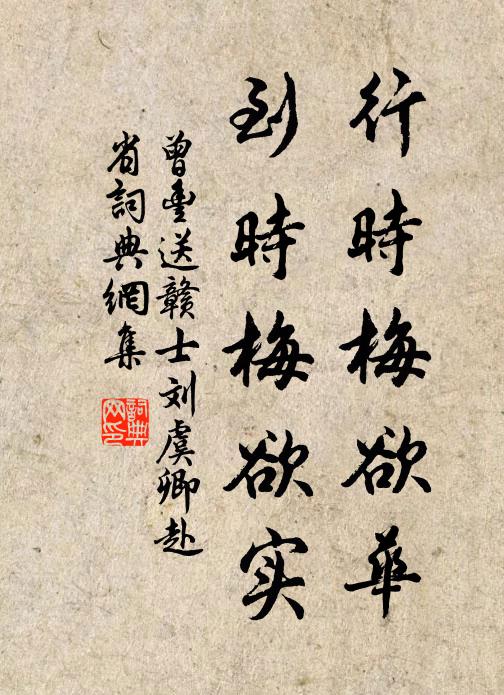 行時梅欲華
到時梅欲实
曾豊送贛士刘虞卿赴
省詞典網集
詞典网印